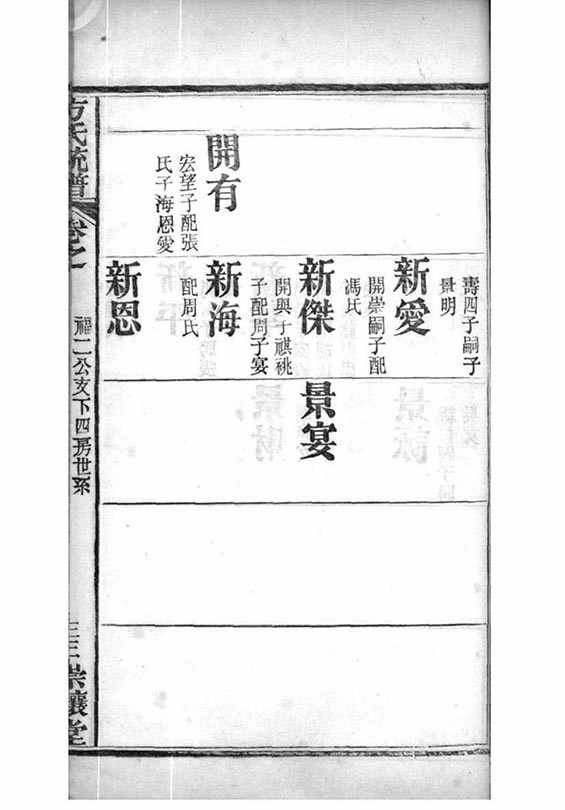 壽四子嗣子
景明
新愛
開崇嗣子配
馮氏
新傑
開與子祺祧
子配周子宴
開有
宏望子配張
氏子海恩愛
新海
配周氏
新恩
景宴
方氏統譜
卷之
福二公支下四房世系
崇讓堂